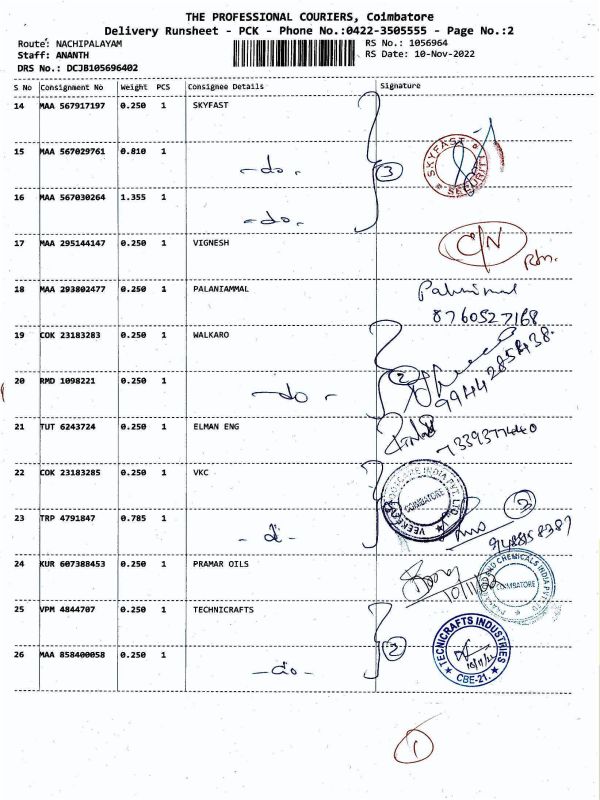 THE PROFESSIONAL COURIERS, Coimbatore
Delivery Runsheet - PCK - Phone No.:0422-3505555 - Page No.:2
Route: NACHIPALAYAM RS No.: 1056964
Staff: ANANTH RS Date: 10-Nov-2022
DRS No.: DCJB105696402
S No Consignment No Weight PCS Consignee Details Signature
14 MAA 567917197 0.250 1 SKYFAST
15 MAA 567029761 0.810 1 -do- 3 SKYFAST SECURITY
16 MAA 567030264 1.355 1 -do-
17 MAA 295144147 0.250 1 VIGNESH C/N
18 MAA 293802477 0.250 1 PALANIAMMAL
8760527168
19 COK 23183283 0.250 1 WALKARO
20 RMD 1098221 0.250 1 -do- 2 9944285438
21 TUT 6243724 0.250 1 ELMAN ENG
22 COK 23183285 0.250 1 VKC COIMBATORE
23 TRP 4791847 0.785 1
24 KUR 607388453 0.250 1 PRAMAR OILS 10/11/22 CHEMICALS INDIA COIMBATORE
25 VPM 4844707 0.250 1 TECHNICRAFTS
26 MAA 858400058 0.250 1 -do- 2 TECNICRAFTS INDUSTRIES CBE-21.
1